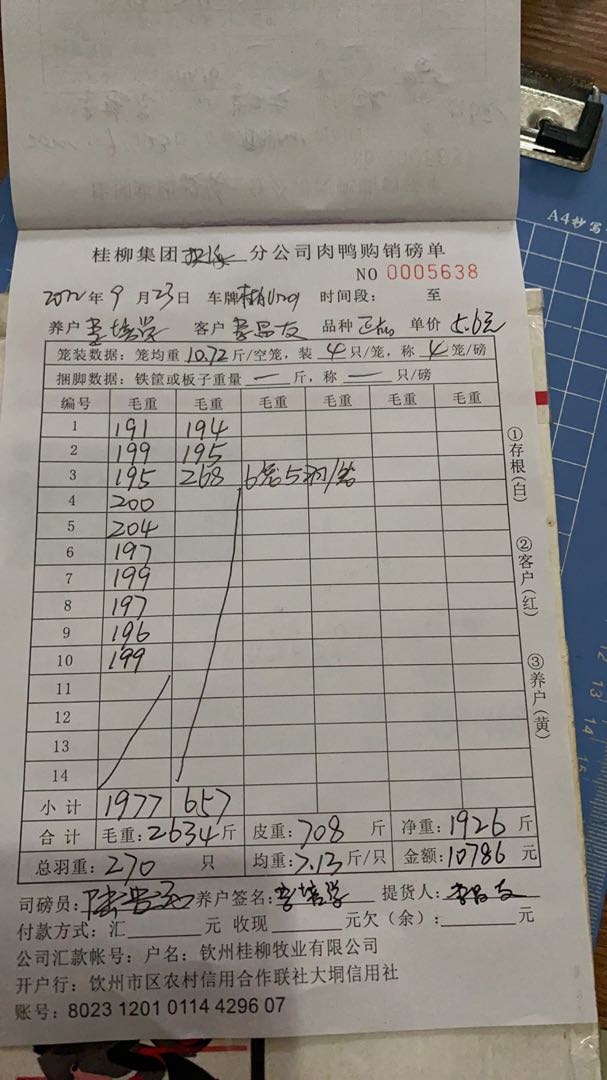 A4抄写
桂柳集团 分公司肉鸭购销磅单
NO 0005638
2022年9月23日 车牌 时间段: 至
养户 李培学 客户 李昌友 品种 单价 5.6元
笼装数据:笼均重10.72斤/空笼,装4只/笼,称4笼/磅
捆脚数据:铁筐或板子重量一斤,称一只/磅
编号 毛重 毛重 毛重 毛重 毛重 毛重
1 191 194
2 199 195
3 195 268 6笼5羽/笼
4 200
5 204
6 197
7 199
8 197
9 196
10 199
11
12
13
14
小计 1977 657
合计 毛重:2634斤 皮重:708斤 净重:1926斤
总羽重:270只 均重:7.13斤/只 金额:10786元
司磅员: 养户签名:李培学 提货人:李昌友
付款方式:汇 元 收现 元欠(余): 元
公司汇款帐号:户名:钦州桂柳牧业有限公司
开户行:钦州市区农村信用合作联社大垌信用社
账号:8023 1201 0114 4296 07
①存根(白)
②客户(红)
③养户(黄)
12
13
14
15